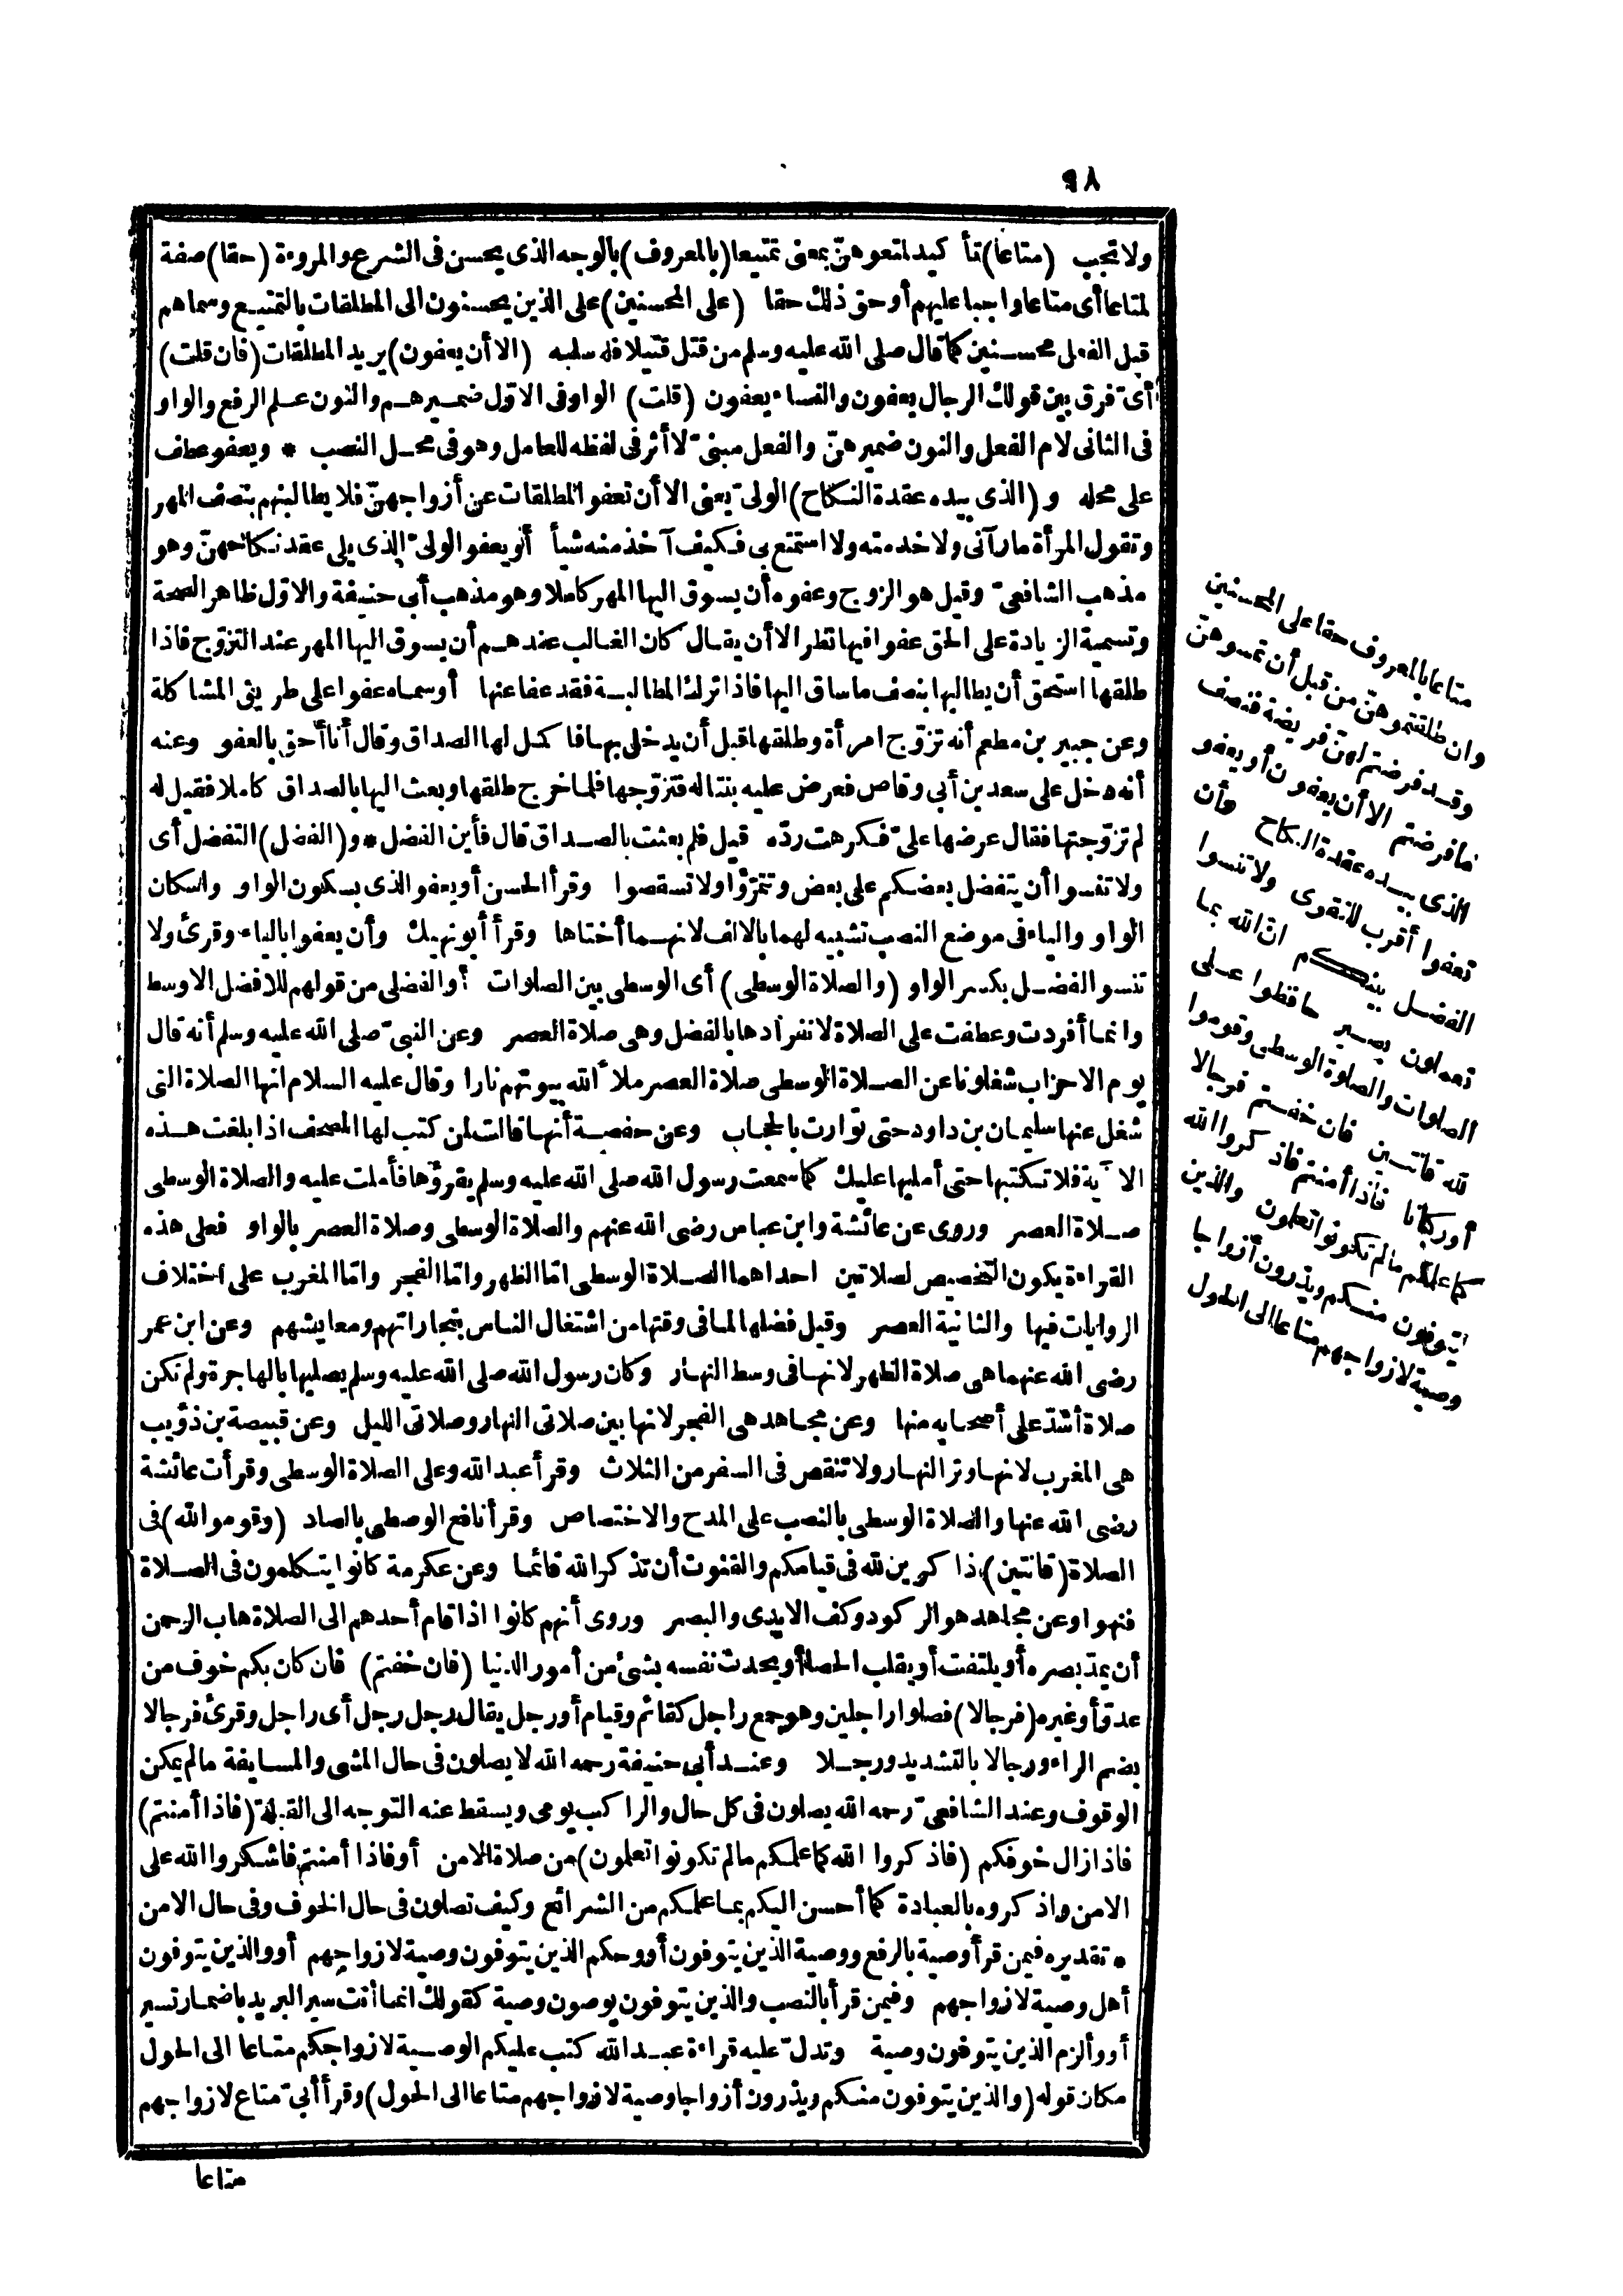 ٩٨
ولا تجب (متاعا) تأ كيد لمتعوهنّ بمعنى تمتيعا (بالمعروف) بالوجه الذى يحسن فى الشرع والمروءة (حقا) صفة
لمتاعا أى متاعا واجبا عليهم أو حق ذلك حقا (على المحسنين) على الذين يحسنون الى المطلقات بالتمتيع وسماهم
قبل الفعل محسنين كما قال صلى الله عليه وسلم من قتل قتيلا فله سلبه (الا أن يعفون) يريد المطلقات (فان قلت)
أىّ فرق بين قولك الرجال يعفون والنساء يعفون (قلت) الواو فى الاوّل ضميرهم والنون علم الرفع والواو
فى الثانى لام الفعل والنون ضميرهنّ والفعل مبنىّ لا أثر فى لفظه للعامل وهو فى محل النصب * ويعفو عطف
على محله و (الذى بيده عقدة النكاح) الولىّ يعنى الا أن تعفو المطلقات عن أزواجهنّ فلا يطالبنهم بنصف المهر
وتقول المرأة ما رآنى ولا خدمته ولا استمتع بى فكيف آخذ منه شيأ أو يعفو الولىّ الذى يلى عقد نكاحهنّ وهو
مذهب الشافعىّ وقيل هو الزوج وعفوه أن يسوق اليها المهر كاملا وهو مذهب أبى حنيفة والاوّل ظاهر الصحة
وتسمية الزيادة على الحق عفوا فيها نظر الا أن يقال كان الغالب عندهم أن يسوق اليها المهر عند التزوّج فاذا
طلقها استحق أن يطالبها بنصف ما ساق اليها فاذا ترك المطالبة فقد عفا عنها أو سماه عفوا على طريق المشاكلة
وعن جبير بن مطعم أنه تزوّج امرأة وطلقها قبل أن يدخل بها فا كمل لها الصداق وقال أنا أحق بالعفو وعنه
أنه دخل على سعد بن أبى وقاص فعرض عليه بنتا له فتزوّجها فلما خرج طلقها وبعث اليها بالصداق كاملا فقيل له
لم تزوّجتها فقال عرضها علىّ فكرهت ردّه قيل فلم بعثت بالصداق قال فأين الفضل * و (الفضل) التفضل أى
ولا تنسوا أن يتفضل بعضكم على بعض وتتمرّؤا ولا تستقصوا وقرأ الحسن أو يعفو الذى بسكون الواو واسكان
الواو والياء فى موضع النصب تشبيه لهما بالالف لانهما أختاها وقرأ أبو نهيك وأن يعفوا بالياء وقرئ ولا
تنسو الفضل بكسر الواو (والصلاة الوسطى) أى الوسطى بين الصلوات أو الفضلى من قولهم للافضل الاوسط
وانما أفردت وعطفت على الصلاة لانفرادها بالفضل وهى صلاة العصر وعن النبىّ صلى الله عليه وسلم أنه قال
يوم الاحزاب شغلونا عن الصلاة الوسطى صلاة العصر ملأ الله بيوتهم نارا وقال عليه السلام انها الصلاة التى
شغل عنها سليمان بن داود حتى توارت بالحجاب وعن حفصة أنها قالت لمن كتب لها المصحف اذا بلغت هذه
الآية فلا تكتبها حتى أمليها عليك كما سمعت رسول الله صلى الله عليه وسلم يقرؤها فأملت عليه والصلاة الوسطى
صلاة العصر وروى عن عائشة وابن عباس رضى الله عنهم والصلاة الوسطى وصلاة العصر بالواو فعلى هذه
القراءة يكون التخصيص لصلاتين احداهما الصلاة الوسطى امّا الظهر وامّا الفجر وامّا المغرب على اختلاف
الروايات فيها والثانية العصر وقيل فضلها لما فى وقتها من اشتغال الناس بتجاراتهم ومعايشهم وعن ابن عمر
رضى الله عنهما هى صلاة الظهر لانها فى وسط النهار وكان رسول الله صلى الله عليه وسلم يصليها بالهاجرة ولم تكن
صلاة أشدّ على أصحابه منها وعن مجاهد هى الفجر لانها بين صلاتى النهار وصلاتى الليل وعن قبيصة بن ذؤيب
هى المغرب لانها وتر النهار ولا تنقص فى السفر من الثلاث وقرأ عبد الله وعلى الصلاة الوسطى وقرأت عائشة
رضى الله عنها والصلاة الوسطى بالنصب على المدح والاختصاص وقرأ نافع الوصطى بالصاد (وقوموا لله) فى
الصلاة (قانتين) ذا كرين لله فى قيامكم والقنوت أن تذكر الله قائما وعن عكرمة كانوا يتكلمون فى الصلاة
فنهوا وعن مجاهد هو الركود وكف الايدى والبصر وروى أنهم كانوا اذا قام أحدهم الى الصلاة هاب الرحمن
أن يمدّ بصره أو يلتفت أو يقلب الحصا أو يحدث نفسه بشئ من أمور الدنيا (فان خفتم) فان كان بكم خوف من
عدوّ أو غيره (فرجالا) فصلوا راجلين وهو جمع راجل كقائم وقيام أو رجل يقال رجل رجل أى راجل وقرئ فرجالا
بضم الراء ورجالا بالتشديد ورجلا وعند أبى حنيفة رحمه الله لا يصلون فى حال المشى والمسايفة ما لم يمكن
الوقوف وعند الشافعىّ رحمه الله يصلون فى كل حال والرا كب يومى ويسقط عنه التوجه الى القبلة (فاذا أمنتم)
فاذا زال خوفكم (فاذ كروا الله كما علمكم ما لم تكونوا تعلمون) من صلاة الامن أو فاذا أمنتم فاشكروا الله على
الامن واذ كروه بالعبادة كما أحسن اليكم بما علمكم من الشرائع وكيف تصلون فى حال الخوف وفى حال الامن
* تقديره فيمن قرأ وصية بالرفع ووصية الذين يتوفون أو وحكم الذين يتوفون وصية لازواجهم أو والذين يتوفون
أهل وصية لازواجهم وفيمن قرأ بالنصب والذين يتوفون يوصون وصية كقولك انما أنت سير البريد باضمار تسير
أو وألزم الذين يتوفون وصية وتدلّ عليه قراءة عبد الله كتب عليكم الوصية لازواجكم متاعا الى الحول
مكان قوله (والذين يتوفون منكم ويذرون أزواجا وصية لازواجهم متاعا الى الحول) وقرأ أبىّ متاع لازواجهم
متاعا
متاعا بالمعروف حقا على المحسنين
وان طلقتموهنّ من قبل أن تمسوهنّ
وقد فرضتم لهنّ فريضة فنصف
ما فرضتم الا أن يعفون أو يعفو
الذى بيده عقدة النكاح وأن
تعفوا أقرب للتقوى ولا تنسوا
الفضل بينكم ان الله بما
تعملون بصير حافظوا على
الصلوات والصلوة الوسطى وقوموا
لله قانتين فان خفتم فرجالا
أو ركبانا فاذا أمنتم فاذ كروا الله
كما علمكم ما لم تكونوا تعلمون والذين
يتوفون منكم ويذرون أزواجا
وصية لازواجهم متاعا الى الحول